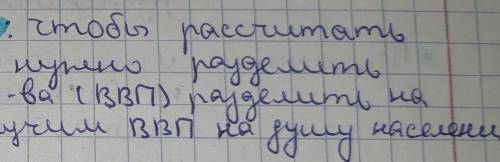 . чтобы рассчитать
нужно разделить
-ва (ВВП) разделить на
учим ВВП на душу населени